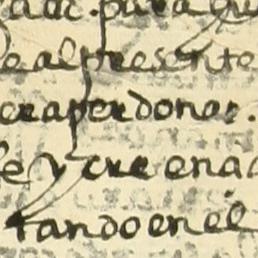 para que
al presente
era perdonar.
y cre en a
tando en el